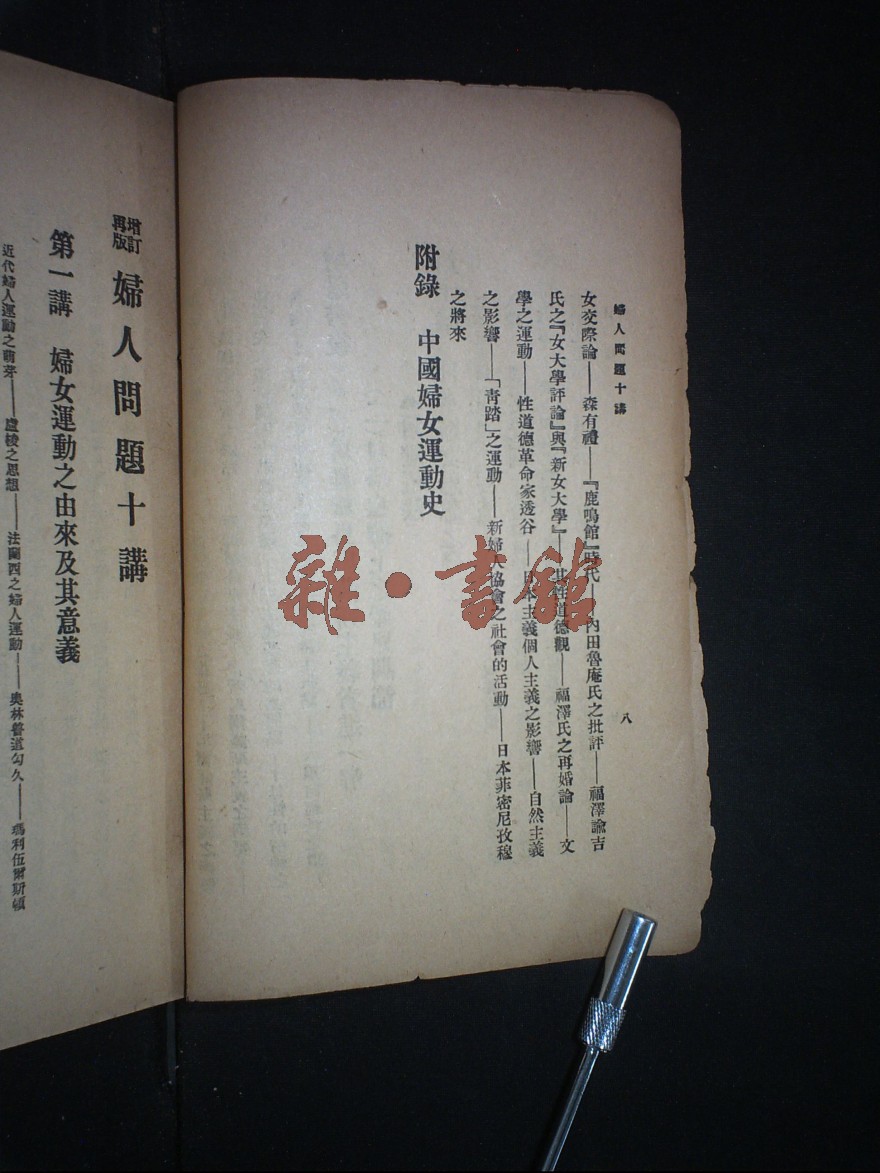 婦人問題十講
八
女交際論——森有禮——『鹿鳴館』時代——內田魯庵氏之批評——福澤諭吉
氏之『女大學評論』與『新女大學』——其性道德觀——福澤氏之再婚論——文
學之運動——性道德革命家透谷——日本主義個人主義之影響——自然主義
之影響——「靑踏」之運動——新婦人協會之社會的活動——日本菲密尼孜穆
之將來
附錄 中國婦女運動史
增訂再版 婦人問題十講
第一講 婦女運動之由來及其意義
近代婦人運動之萌芽——盧梭之思想——法蘭西之婦人運動——奧林普道勾久——瑪利伍爾斯頓
雜·書館